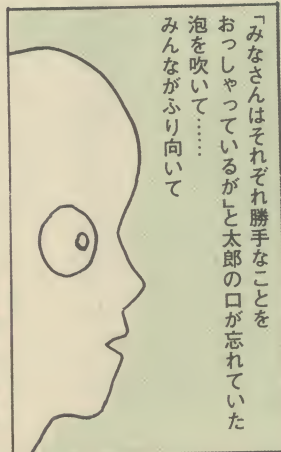 「みなさんはそれぞれ勝手なことを
おっしゃっているが」と太郎の口が忘れていた
泡を吹いて……
みんながふり向いて